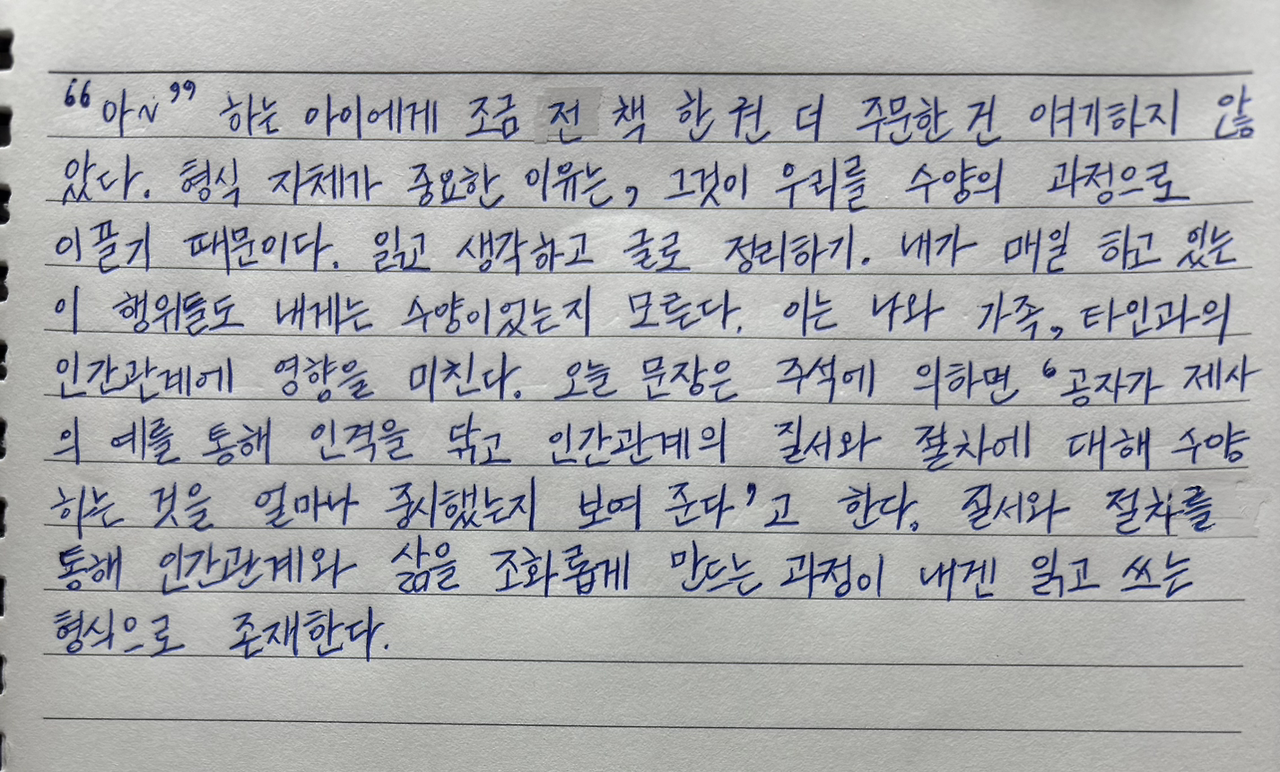 “아~” 하는 아이에게 조금 전 책 한 권 더 주문한 건 얘기하지 않
았다. 형식 자체가 중요한 이유는, 그것이 우리를 수양의 과정으로
이끌기 때문이다. 읽고 생각하고 글로 정리하기. 내가 매일 하고 있는
이 행위들도 내게는 수양이었는지 모른다. 이는 나와 가족, 타인과의
인간관계에 영향을 미친다. 오늘 문장은 주석에 의하면 ‘공자가 제사
의 예를 통해 인격을 닦고 인간관계의 질서와 절차에 대해 수양
하는 것을 얼마나 중시했는지 보여 준다’고 한다. 질서와 절차를
통해 인간관계와 삶을 조화롭게 만드는 과정이 내겐 읽고 쓰는
형식으로 존재한다.